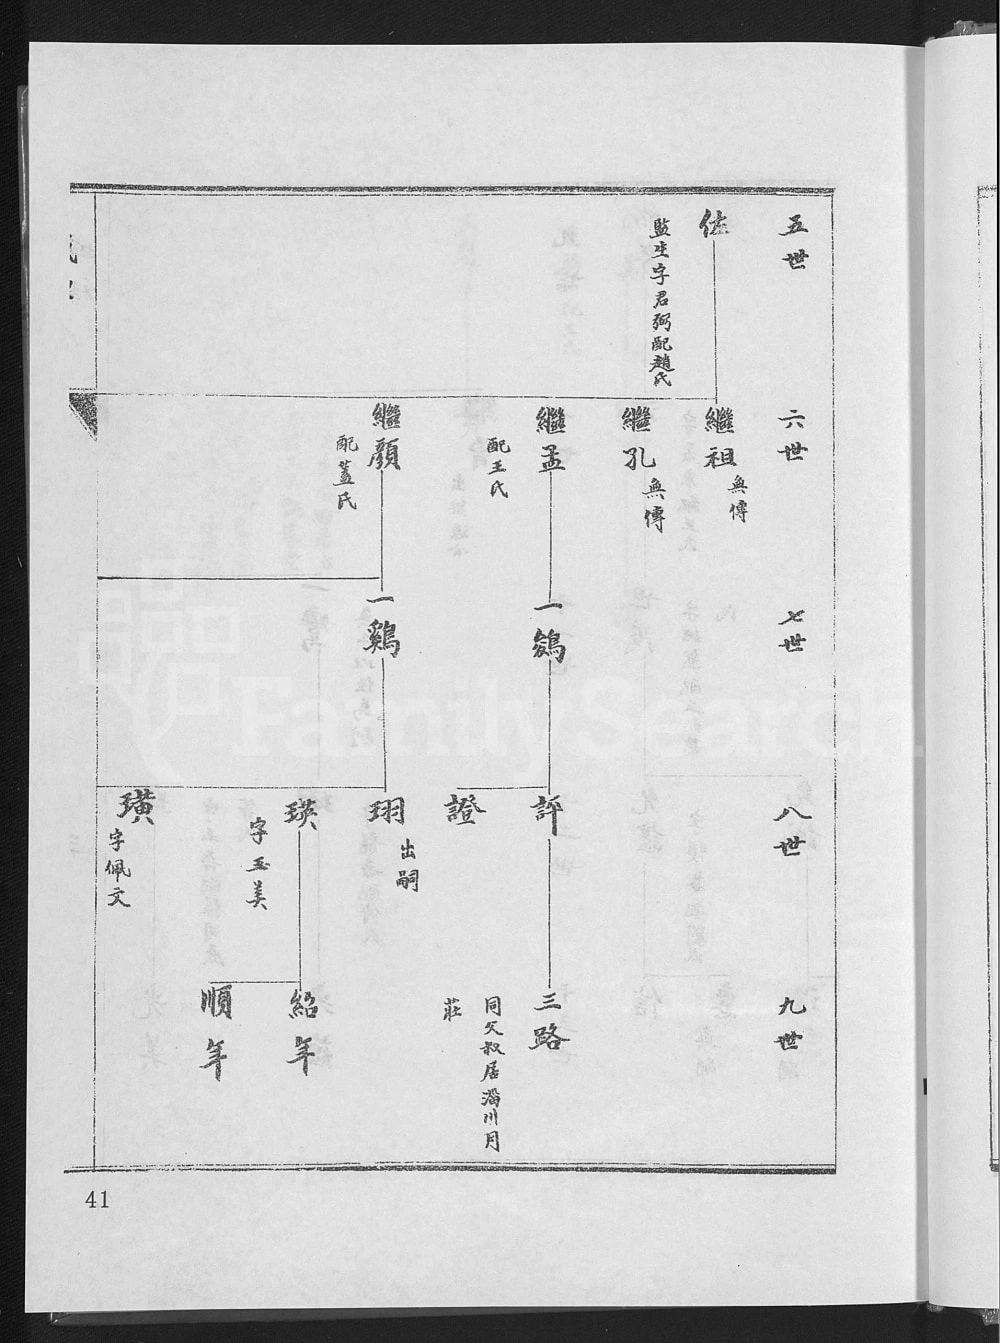 五世
佐
監生字君弼配趙氏
六世
繼祖
無傳
繼孔
無傳
繼孟
配王氏
繼顏
配蓋氏
七世
一鵨
一鷄
八世
評
證
珝
出嗣
瑛
字玉美
璜
字佩文
九世
三路
同父叔居淄川月
莊
紹年
順年
41
FamilySearch